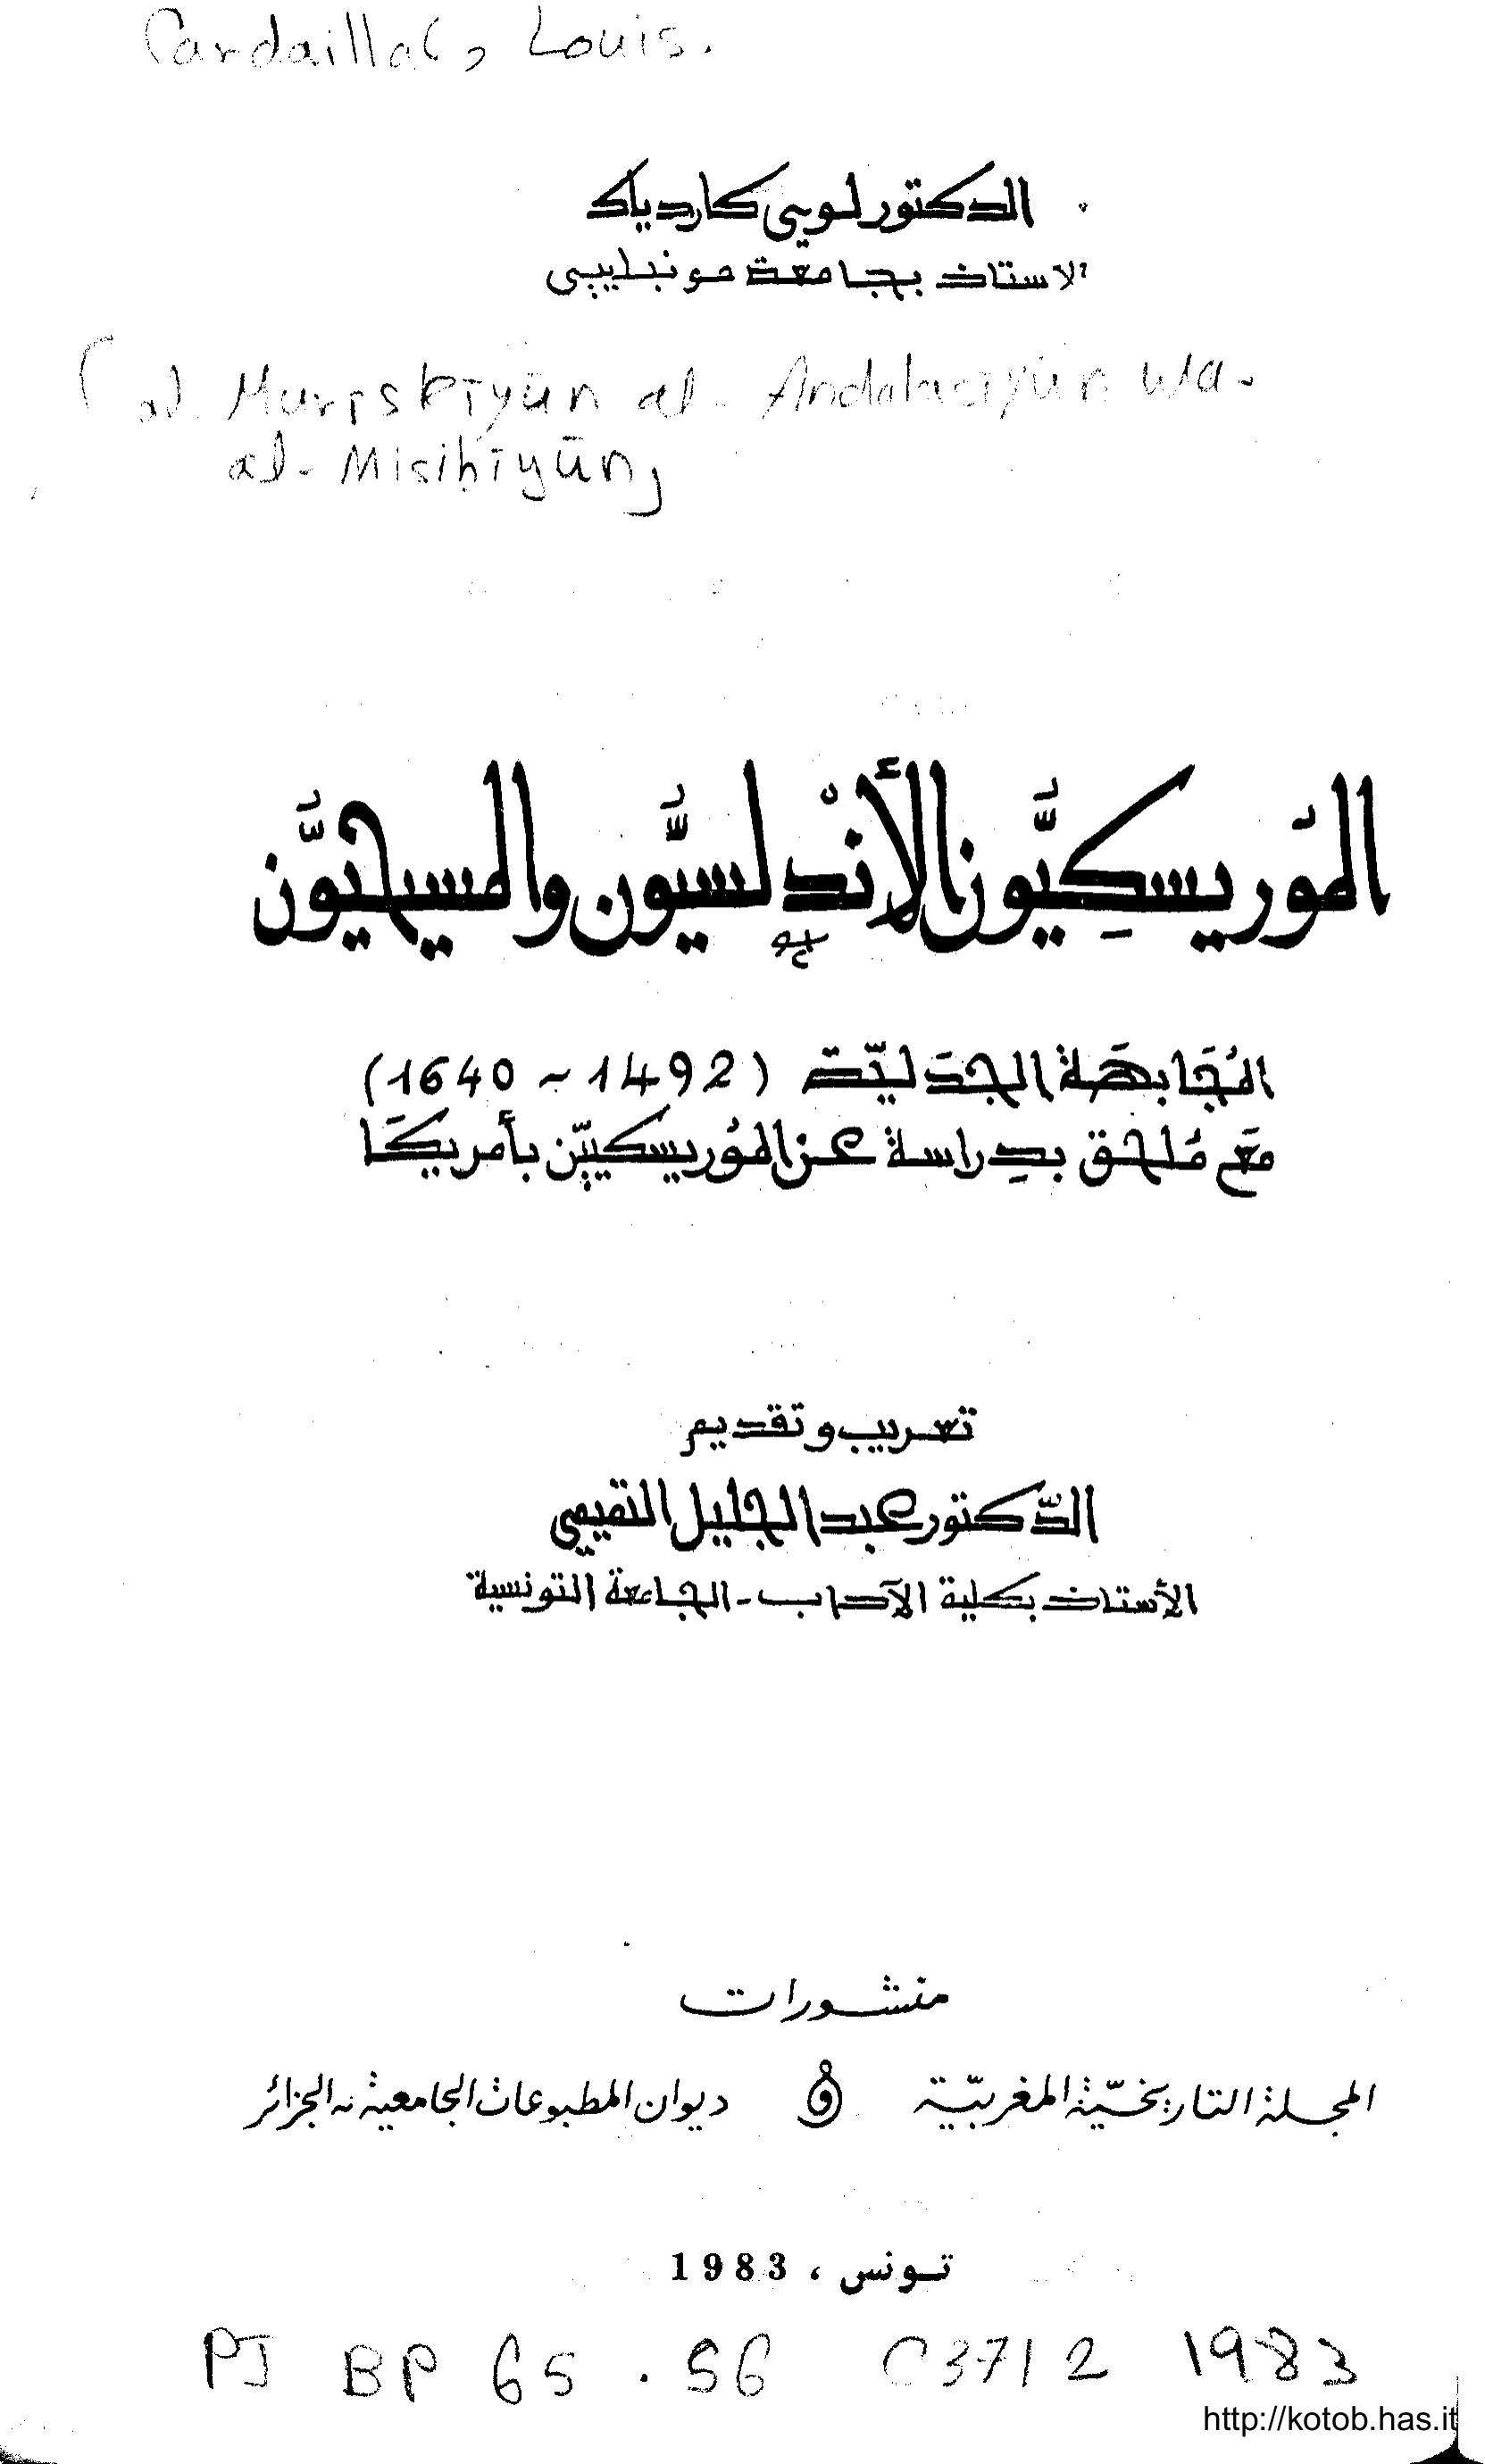 Cardaillac, Louis.
الدكتور لوي كاردياك
الاستاذ بجامعة مونبلييي
al. Muriskīyūn al- Andalusīyūn wa-
al- Misiḥīyūn
المُوريسكِيُّون الأنْدلسيُّون والمسيحيُّون
المُجَابهَة الجدَليّة (1492 ~ 1640)
مَع مُلحق بدِراسة عن المُوريسكييّن بأمريكَا
تعريب وتقديم
الدّكتور عبد الجليل التميمي
الأستاذ بكلية الآداب - الجامعة التونسية
منشورات
المجلة التاريخيّة المغربيّة و ديوان المطبوعات الجامعية ـ الجزائر
تونس ، 1983
PJ BP 65 . S6 C3712 1983
http://kotob.has.it